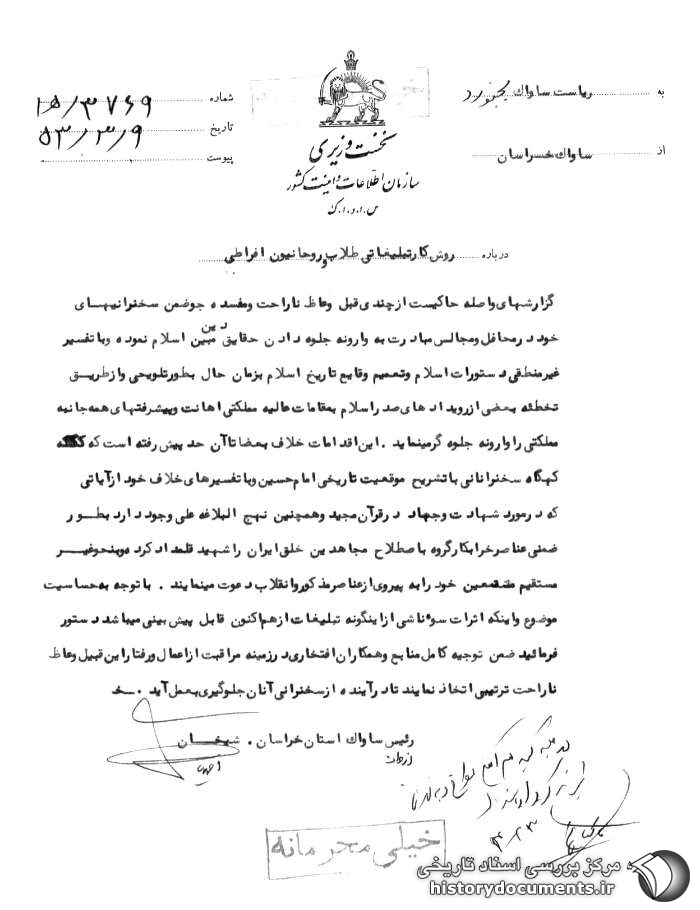 به ریاست ساواک بجنورد
از ساواک خراسان
نخست وزیری
سازمان اطلاعات و امنیت کشور
س.ا.و.ا.ک
شماره ۱۵/۳۷۶۹
تاریخ ۵۳/۳/۹
پیوست
درباره روش کار تبلیغاتی طلاب و روحانیون افراطی
گزارشهای واصله حاکیست از چندی قبل وعاظ ناراحت و مفسده جو ضمن سخنرانیهای
خود در محافل و مجالس مبادرت به وارونه جلوه دادن حقایق دین مبین اسلام نموده و با تفسیر
غیر منطقی دستورات اسلام و تعمیم وقایع تاریخ اسلام بزمان حال بطور تلویحی و از طریق
تخطئه بعضی از رویدادهای صدر اسلام بمقامات عالیه مملکتی اهانت و پیشرفتهای همه جانبه
مملکتی را وارونه جلوه گر مینماید . این اقدامات خلاف بعضا تا آن حد پیش رفته است که
گهگاه سخنرانانی با تشریح موقعیت تاریخی امام حسین و با تفسیرهای خلاف خود از آیاتی
که در مورد شهادت و جهاد در قرآن مجید و همچنین نهج البلاغه علی وجود دارد بطور
ضمنی عناصر خرابکار گروه باصطلاح مجاهدین خلق ایران را شهید قلمداد کرده و بنحو غیر
مستقیم مستمعین خود را به پیروی از عناصر مذکور و انقلاب دعوت مینمایند . با توجه به حساسیت
موضوع و اینکه اثرات سوء ناشی از اینگونه تبلیغات از هم اکنون قابل پیش بینی میباشد دستور
فرمائید ضمن توجیه کامل منابع و همکاران افتخاری در زمینه مراقبت از اعمال و رفتار این قبیل وعاظ
ناراحت ترتیبی اتخاذ نمایند تا در آینده از سخنرانی آنان جلوگیری بعمل آید . سخ
رئیس ساواک استان خراسان . شیخان
از طرف
خیلی محرمانه
مرکز بررسی اسناد تاریخی
historydocuments.ir